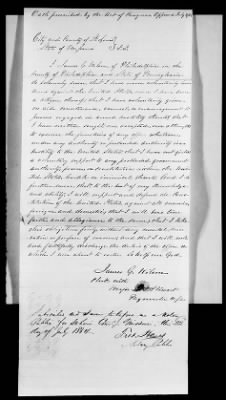 Oath prescribed by the Act of Congress Approved July 2
City and County of
State of
I James G. Wilson of Philadelphia in the
County of Philadelphia and State of Pennsylvania
do solemnly swear that I have never voluntarily borne
arms against the United States since I have been
a citizen thereof that I have voluntarily given
no aid, countenance, counsel, or encouragement to
persons engaged in armed hostility thereto that
I have neither sought nor accepted nor attempted
to exercise the functions of any office whatever
under any authority or pretended authority in
hostility to the United States that I have not yielded
a voluntary support to any pretended government
authority, power or constitution within the United
States hostile or inimical thereto And I do
further swear that to the best of my knowledge
and ability I will support and defend the Consti-
tution of the United States against all enemies
foreign and domestic that I will bear true
faith and allegiance to the same that I take
this obligation freely without any mental reser-
vation or purpose of evasion and that I will well
and faithfully discharge the duties of the office on
which I am about to enter So help me God.
James G. Wilson
Clerk with
Major
Paymaster
Subscribed and sworn to before me a Notary
Public for
day of July 1864.
Notary Public